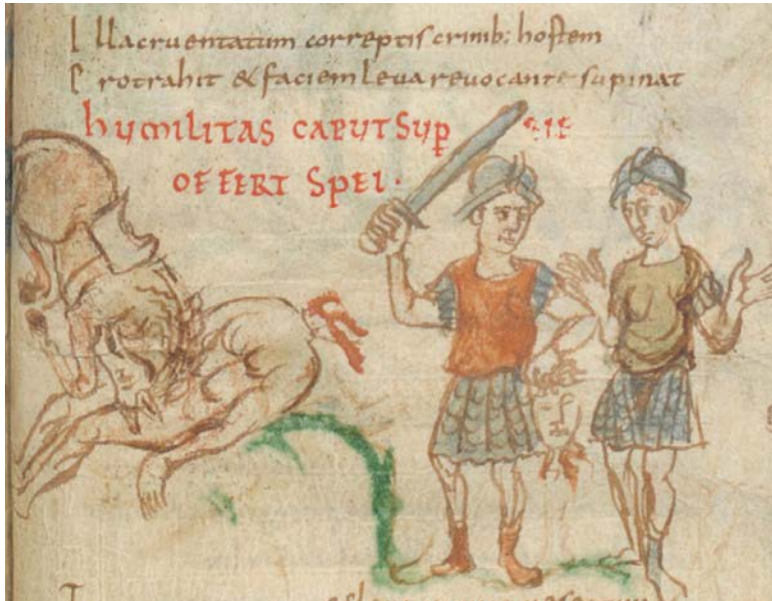 Illa cruentatum correptis crinib: hostem
Protrahit & faciem leva revocante supinat
hUMILITAS CAPUT SUP
OFFERT SPEI ·